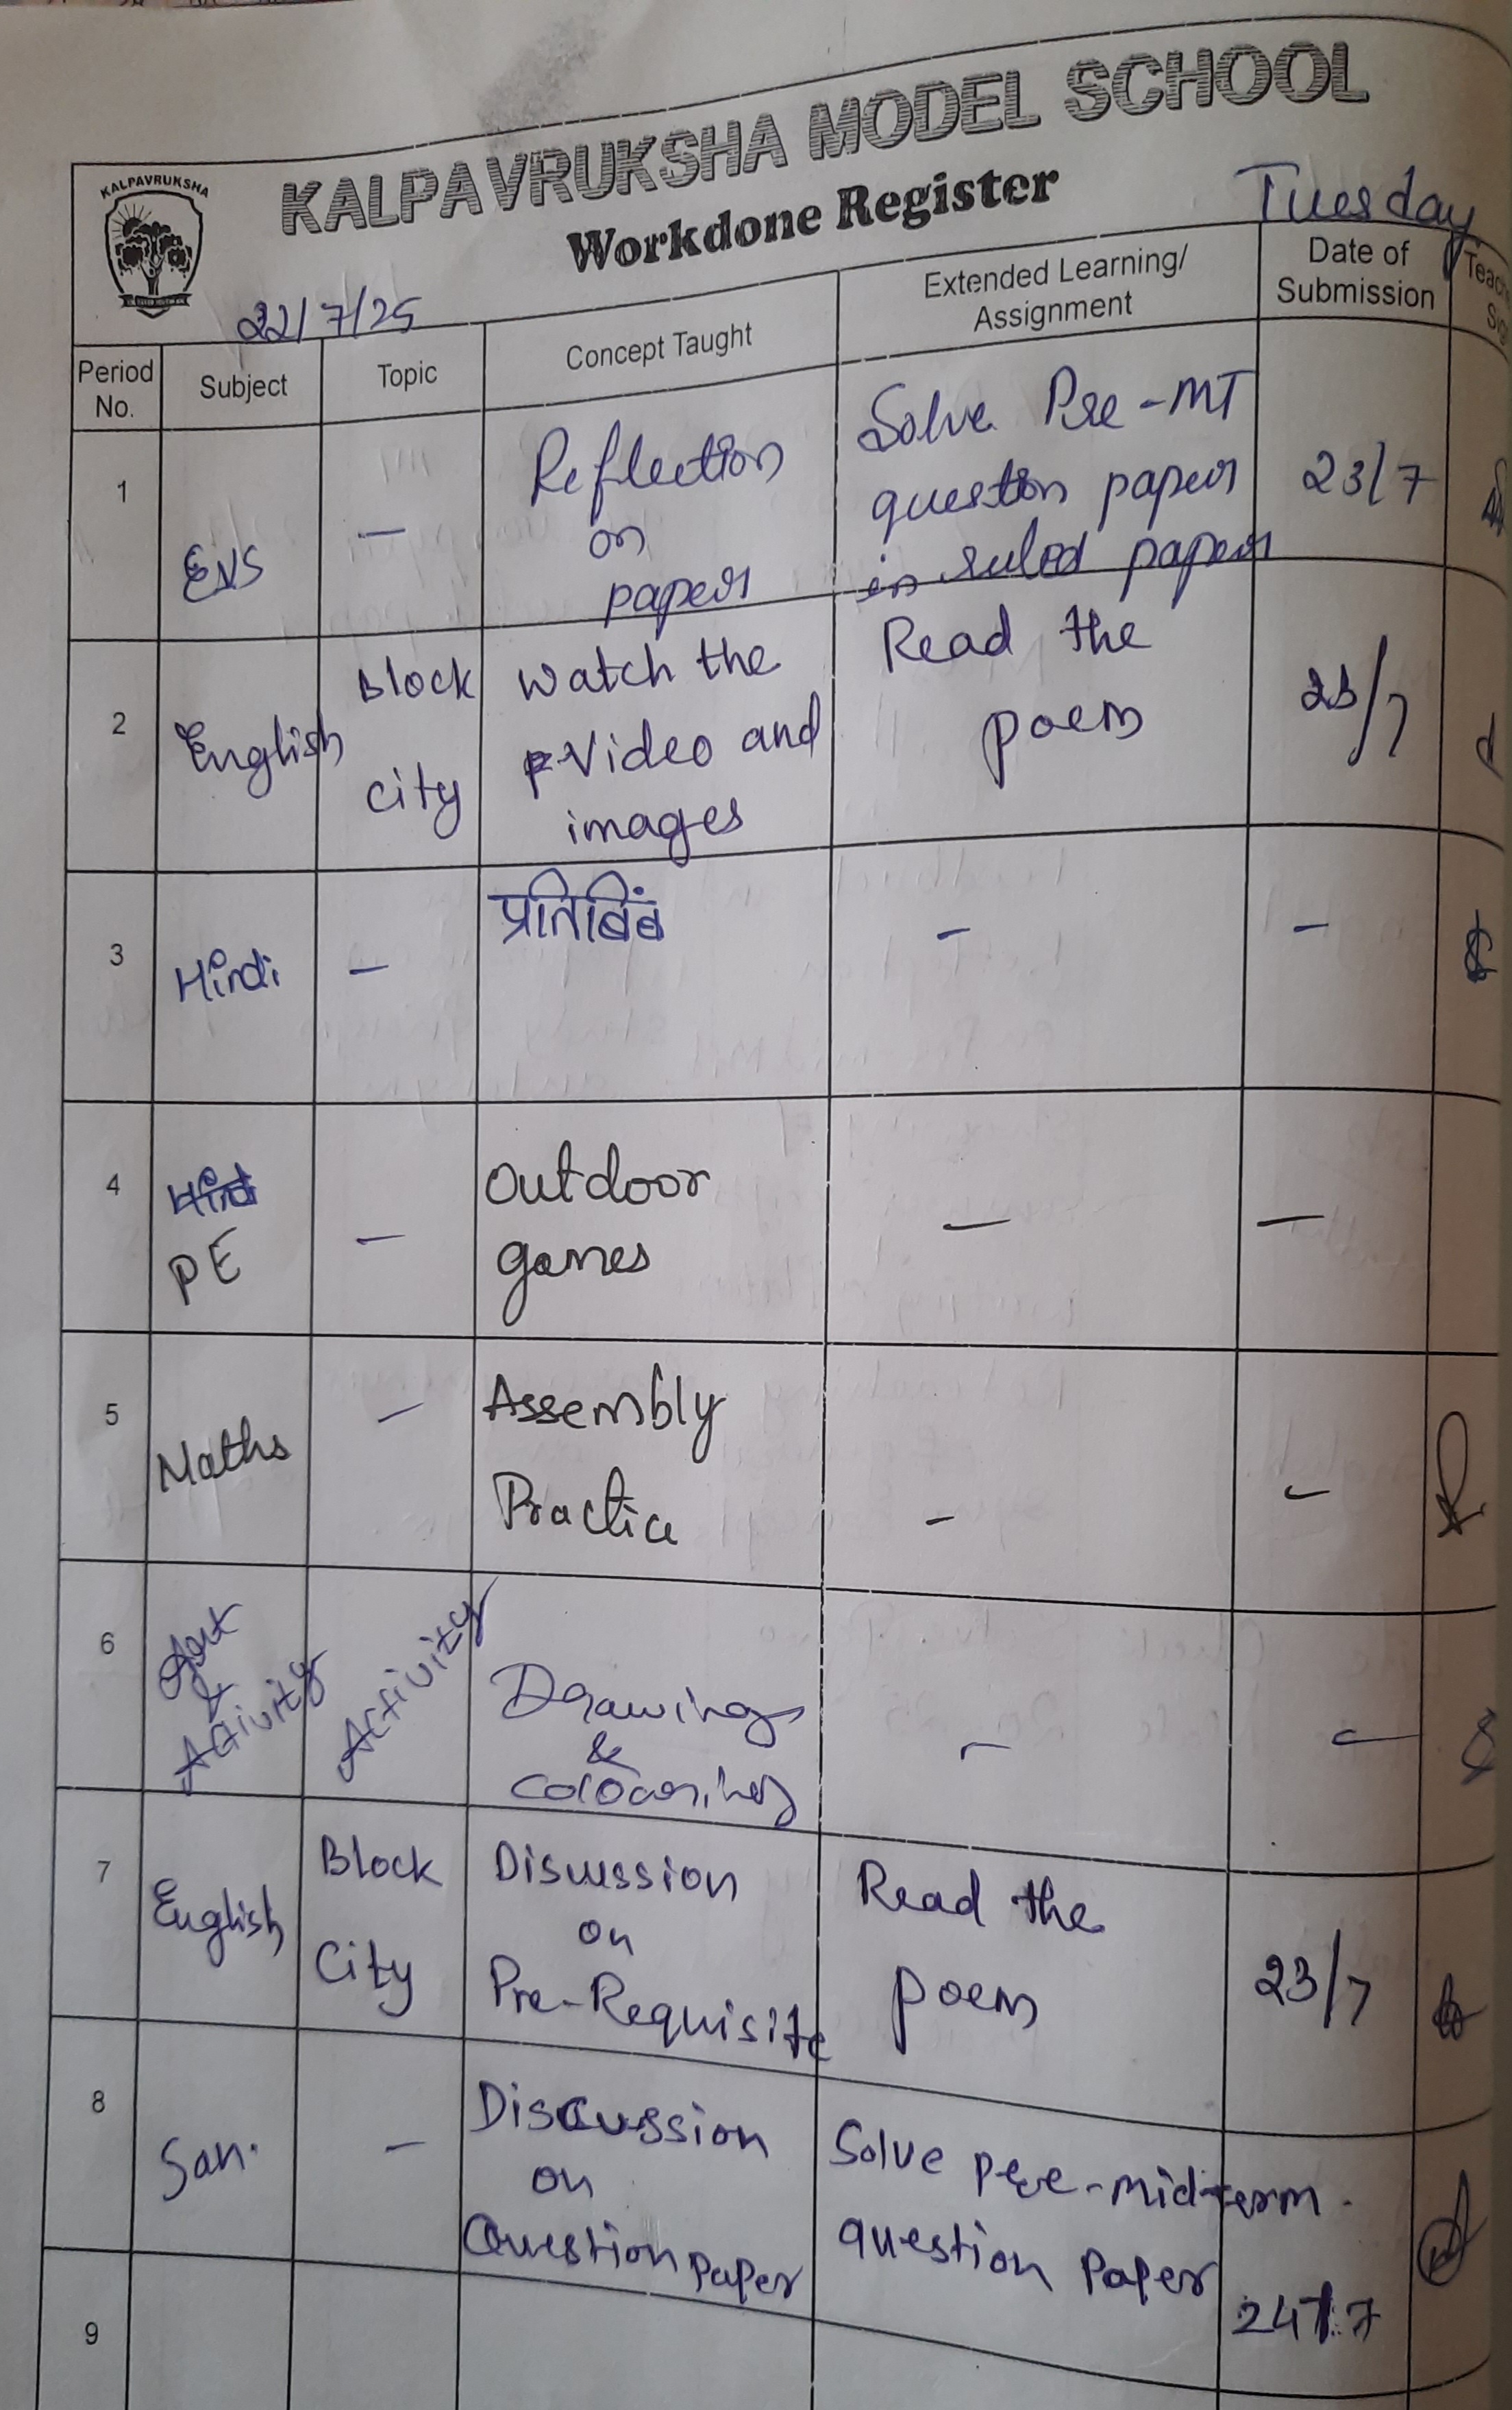 KALPAVRUKSHA
KALPAVRUKSHA MODEL SCHOOL
Workdone Register
Tuesday
22/7/25
Period No.
Subject
Topic
Concept Taught
Extended Learning/
Assignment
Date of
Submission
1
EVS
–
Reflection
on
paper
Solve Pre-MT
question paper
in ruled paper
23/7
2
English
Block
city
Watch the
Video and
images
Read the
poem
23/7
3
Hindi
–
प्रतिबिंब
–
–
4
PE
–
Outdoor
games
–
–
5
Maths
–
Assembly
Practice
–
–
6
Art
&
Activity
Activity
Drawing
&
Colouring
–
–
7
English
Block
City
Discussion
on
Pre-Requisite
Read the
poem
23/7
8
San.
–
Discussion
on
Question paper
Solve pre-midterm.
question paper
24/7
9